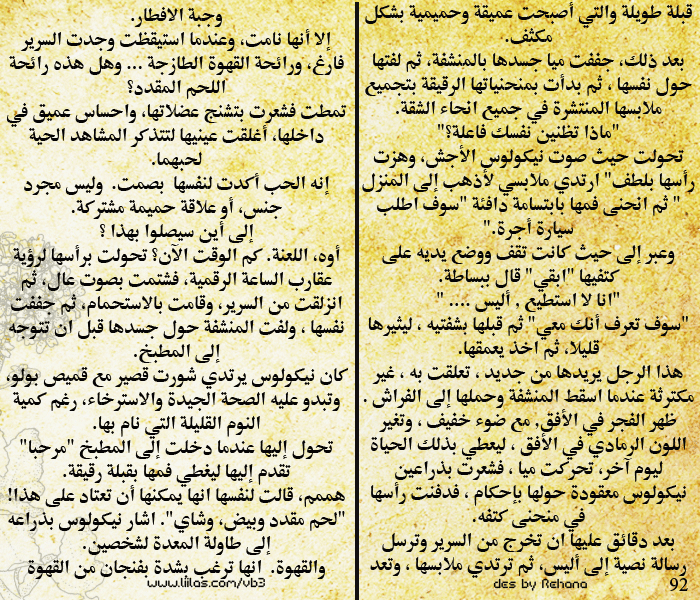 قبلة طويلة والتي أصبحت عميقة وحميمية بشكل
مكثف.
بعد ذلك، جففت ميا جسدها بالمنشفة، ثم لفتها
حول نفسها ، ثم بدأت بمنحنياتها الرقيقة بتجميع
ملابسها المنتشرة في جميع انحاء الشقة.
"ماذا تظنين نفسك فاعلة؟"
تحولت حيث صوت نيكولوس الأجش، وهزت
رأسها بلطف" ارتدي ملابسي لأذهب إلى المنزل
" ثم انحنى فمها بابتسامة دافئة "سوف اطلب
سيارة أجرة."
وعبر إلى حيث كانت تقف ووضع يديه على
كتفيها "ابقي" قال ببساطة.
"انا لا استطيع , أليس .... "
"سوف تعرف أنك معي" ثم قبلها بشفتيه ، ليثيرها
قليلا، ثم اخذ يعمقها.
هذا الرجل يريدها من جديد ، تعلقت به ، غير
مكترثة عندما اسقط المنشفة وحملها إلى الفراش .
ظهر الفجر في الأفق, مع ضوء خفيف ، وتغير
اللون الرمادي في الأفق ، ليعطي بذلك الحياة
ليوم آخر، تحركت ميا ، فشعرت بذراعين
نيكولوس معقودة حولها بإحكام ، فدفنت رأسها
في منحنى كتفه.
بعد دقائق عليها ان تخرج من السرير وترسل
رسالة نصية إلى أليس، ثم ترتدي ملابسها ، وتعد
92
des by Rehana
وجبة الافطار.
إلا أنها نامت، وعندما استيقظت وجدت السرير
فارغ، ورائحة القهوة الطازجة ... وهل هذه رائحة
اللحم المقدد؟
تمطت فشعرت بتشنج عضلاتها، واحساس عميق في
داخلها، أغلقت عينيها لتتذكر المشاهد الحية
لحبهما.
إنه الحب أكدت لنفسها بصمت. وليس مجرد
جنس، أو علاقة حميمة مشتركة.
إلى أين سيصلوا بهذا ؟
أوه، اللعنة. كم الوقت الآن؟ تحولت برأسها لرؤية
عقارب الساعة الرقمية، فشتمت بصوت عال، ثم
انزلقت من السرير، وقامت بالاستحمام، ثم جففت
نفسها ، ولفت المنشفة حول جسدها قبل ان تتوجه
إلى المطبخ.
كان نيكولوس يرتدي شورت قصير مع قميص بولو،
وتبدو عليه الصحة الجيدة والاسترخاء، رغم كمية
النوم القليلة التي نام بها.
تحول إليها عندما دخلت إلى المطبخ "مرحبا"
تقدم إليها ليغطي فمها بقبلة رقيقة.
هممم، قالت لنفسها انها يمكنها أن تعتاد على هذا!
"لحم مقدد وبيض، وشاي". اشار نيكولوس بذراعه
إلى طاولة المعدة لشخصين.
والقهوة. انها ترغب بشدة بفنجان من القهوة
www.liilas.com/vb3